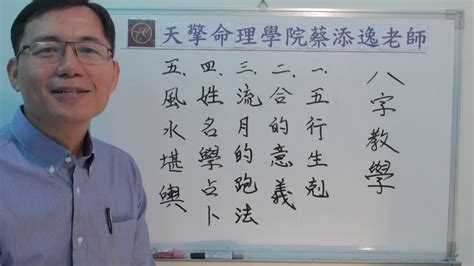 天擎命理學院蔡添逸老師
八字教學
一、五行生剋
二、合的意義
三、流月的跑法
四、姓名學占卜
五、風水堪輿